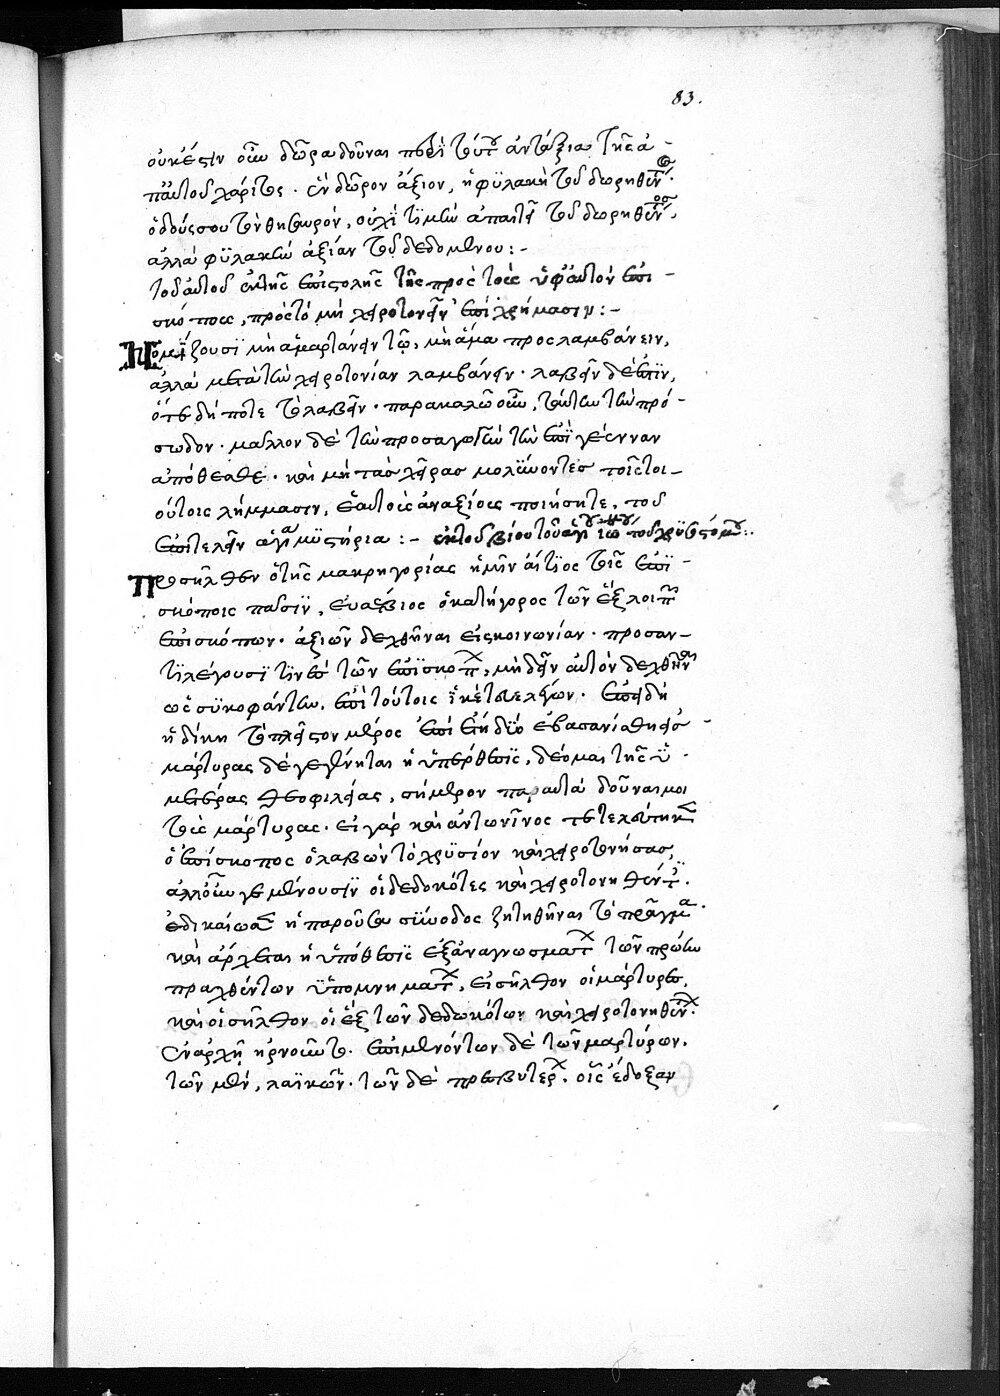 83.
οὐκ ἔστιν οὖν δῶρα δοῦναι περὶ τούτ ἀντάξια τῆς ἀ-
παὐτοῦ χάριτος. ἓν δῶρον ἄξιον, ἡ φϋλακὴ τοῦ δωρηθέν.
ὁ δούς σου τὸν θησαυρόν, οὐχὶ τϊμὴν ἀπαιτεῖ τοῦ δωρηθέν,
ἀλλὰ φϋλακὴν ἀξίαν τοῦ δεδομένου :-
Τοῦ αὐτοῦ ἐκ τῆς ἐπιστολῆς τῆς πρὸς τοὺς ὑφ' ἑαυτὸν ἐπι-
σκόπους, πρὸς τὸ μὴ χειροτονεῖν ἐπὶ χρήμασιν :-
Νομΐζουσϊ μὴ ἁμαρτάνειν τῷ, μὴ ἅμα προσλαμβάνειν,
ἀλλὰ μετὰ τὴν χειροτονίαν λαμβάνειν. λαβεῖν δέ ἐστϊν,
ὅτε δή ποτε τὸ λαβεῖν. παρακαλῶ οὖν, ταύτην τὴν πρό-
σωδον. μᾶλλον δὲ τὴν προσαγωγὴν τὴν ἐπϊ γέενναν
ἀπόθεσθε. καὶ μὴ τὰς χεῖρας μολϋνοντες τοῖς τοι-
ούτοις λήμμασιν, ἑαυτοὺς ἀναξίους ποιήσητε, τοῦ
ἐπιτελεῖν ἅγια μϋστήρια :- ἐκ τοῦ βίου τοῦ ἁγί ἰω τοῦ χρϋσοστόμου :.
Προσῆλθεν ὁ τῆς μακρηγορίας ἡμῖν αἴτϊος τοῖς ἐπϊ-
σκόποις πᾶσϊν, εὐσέβιος ὁ κατήγορος τῶν ἓξ λοιπῶν
ἐπισκόπων. ἀξιῶν δεχθῆναι εἰς κοινωνίαν. προσαν-
τϊλέγουσϊ τϊνὲς τῶν ἐπϊσκόπ, μὴ δεῖν αὐτὸν δεχθῆναι
ὡς σϋκοφάντην. ἐπὶ τούτοις ἱκέτευε λέγων. ἐπειδὴ
ἡ δίκη τὸ πλεῖστον μέρος ἐπὶ ἔτη δϋο ἐβασανίσθη εἰς
μάρτυρας δὲ γεγένηται ἡ ὑπέρθεσϊς, δέομαι τῆς ϋ-
μετέρας θεοφιλείας, σήμερον παρ αὐτὰ δοῦναι μοι
τοὺς μάρτυρας. εἰ γὰρ καὶ ἀντωνῖνος τετελεύτηκεν
ὁ ἐπίσκοπος ὁ λαβὼν τὸ χρϋσίον καὶ χειροτονήσας,
ἀλλ' οὖν γε μένουσϊν οἱ δεδοκότες καὶ χειροτονηθέντ.
ἐδικαίωσεν ἡ παροῦσα σϋνοδος ζητηθῆναι τὸ πρᾶγμα.
καὶ ἄρχεται ἡ ὑπόθεσϊς ἐξ ἀναγνωσματ τῶν πρώην
πραχθέντων ὑπομνηματ, εἰσῆλθον οἱ μάρτυρες,
καὶ οἰσῆλθον οἱ ἓξ τῶν δεδωκότων καὶ χειροτονηθέν.
ἐν ἀρχῇ ἠρνοῦντο. ἐπιμενόντων δὲ τῶν μαρτύρων.
τῶν μέν, λαϊκῶν. τῶν δὲ πρεσβυτερ. οἷς ἔδοξαν